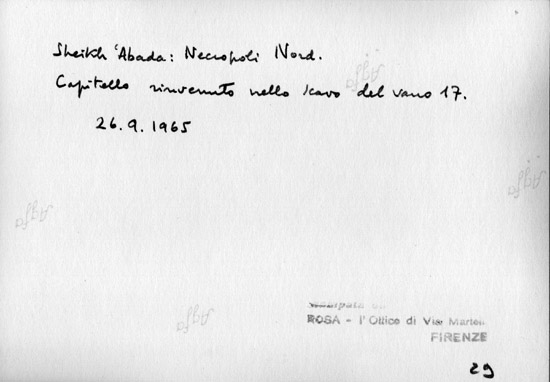 Sheikh 'Abada: Necropoli Nord.
Capitello rinvenuto nello scavo del vano 17.
26.9.1965
Agfa
Agfa
Agfa
Agfa
ROSA - l'Ottico di Via Martelli
FIRENZE
29